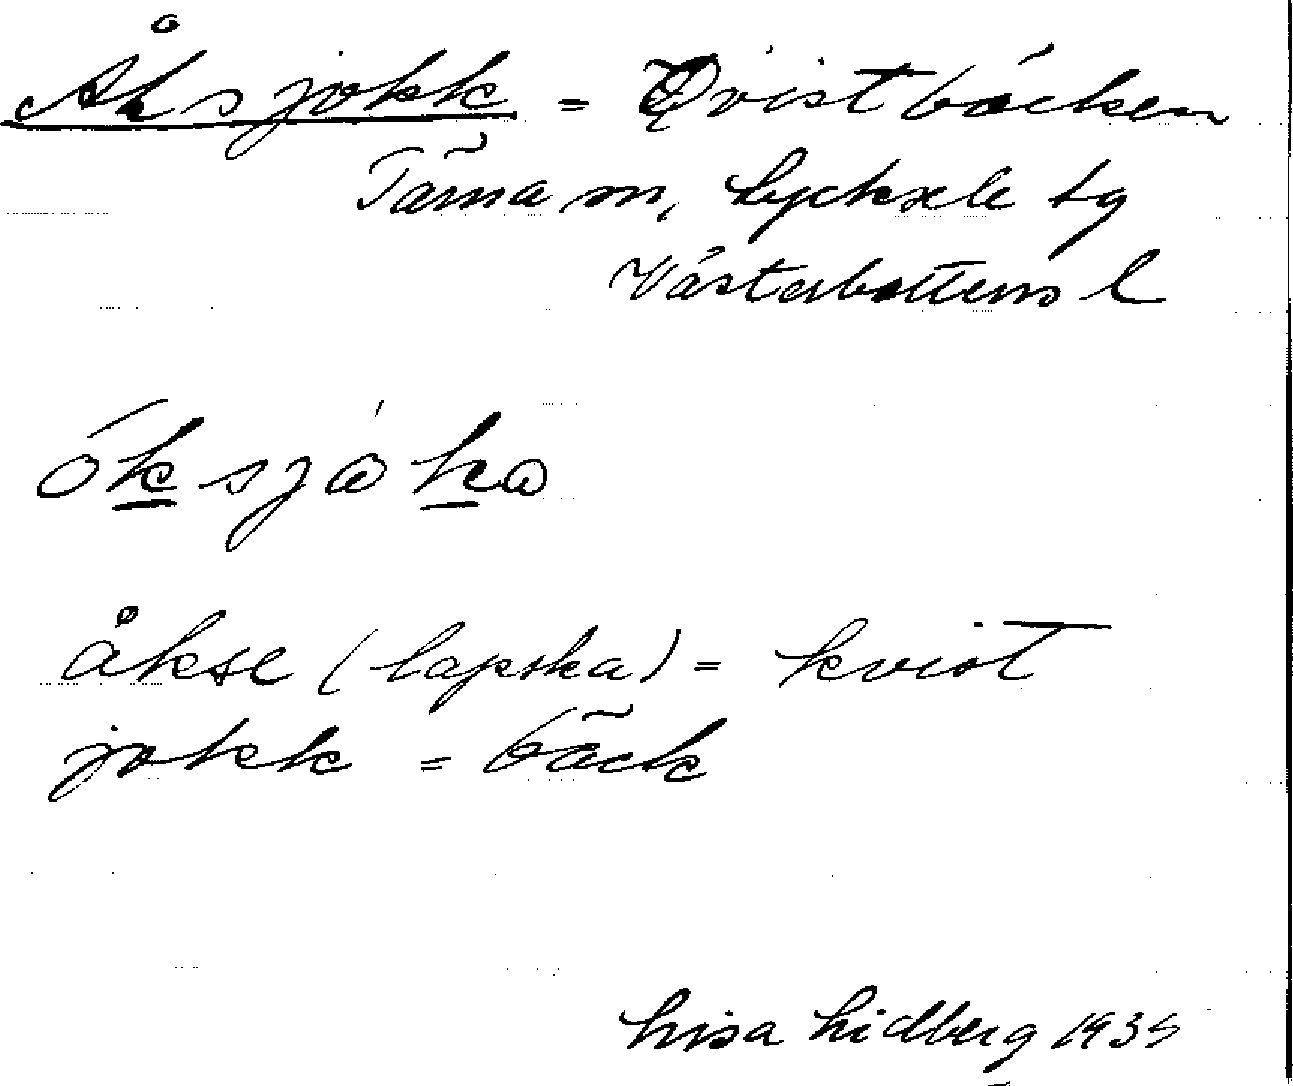 Åksjokk = Qvistbäcken
Tärna sn, Lycksele tg
Västerbottens l
ók̲sjåk̲a
åkse (lapska) = kvist
jokk = bäck
Lisa Lidberg 1935